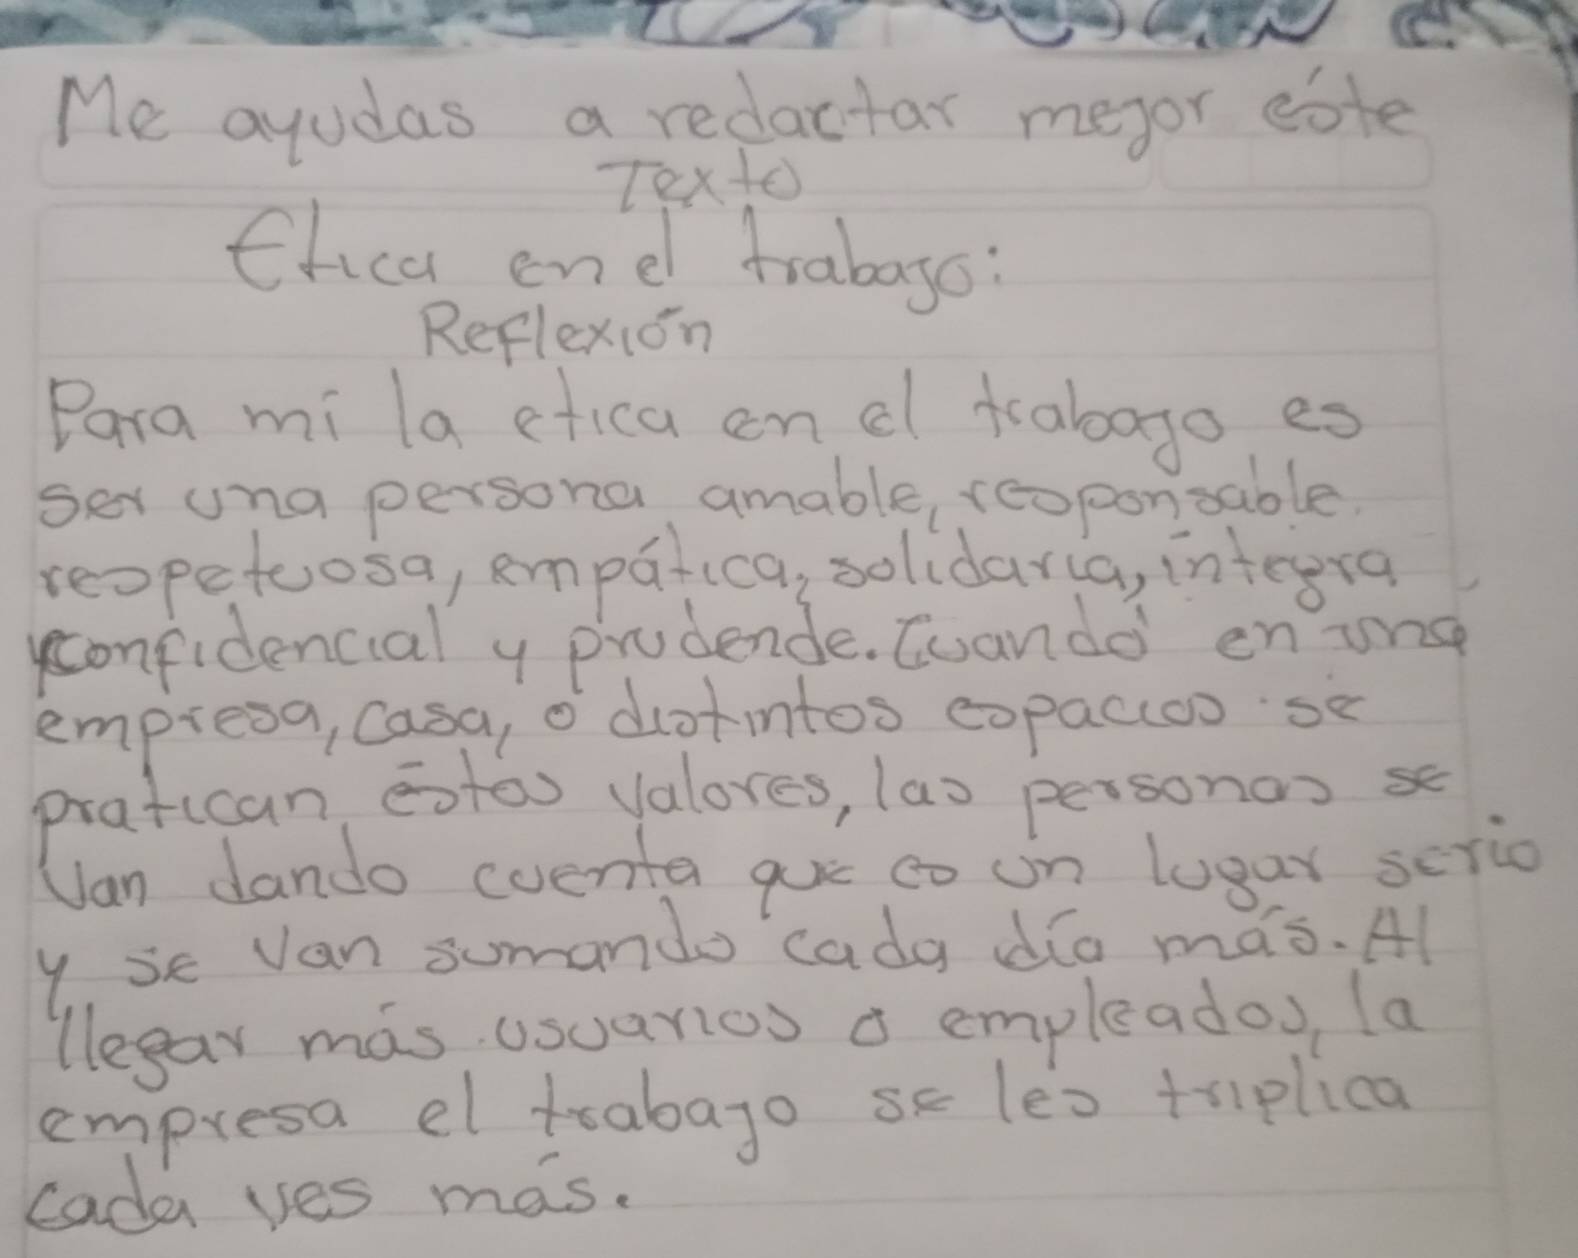 Me ayudas a redactar mejor éste
Texto
Etica en el trabajo:
Reflexión
Para mi la etica en el trabajo es
ser una persona amable, responsable.
respetuosa, empática, solidaria, integra
confidencial y prudende. Cuando en una
empresa, casa, o distintos espacios se
pratican éstos valores, las personas se
van dando cuenta que es un lugar serio
y se van sumando cada día más. Al
llegar más usuarios o empleados, la
empresa el trabajo se les triplica
cada ves más.